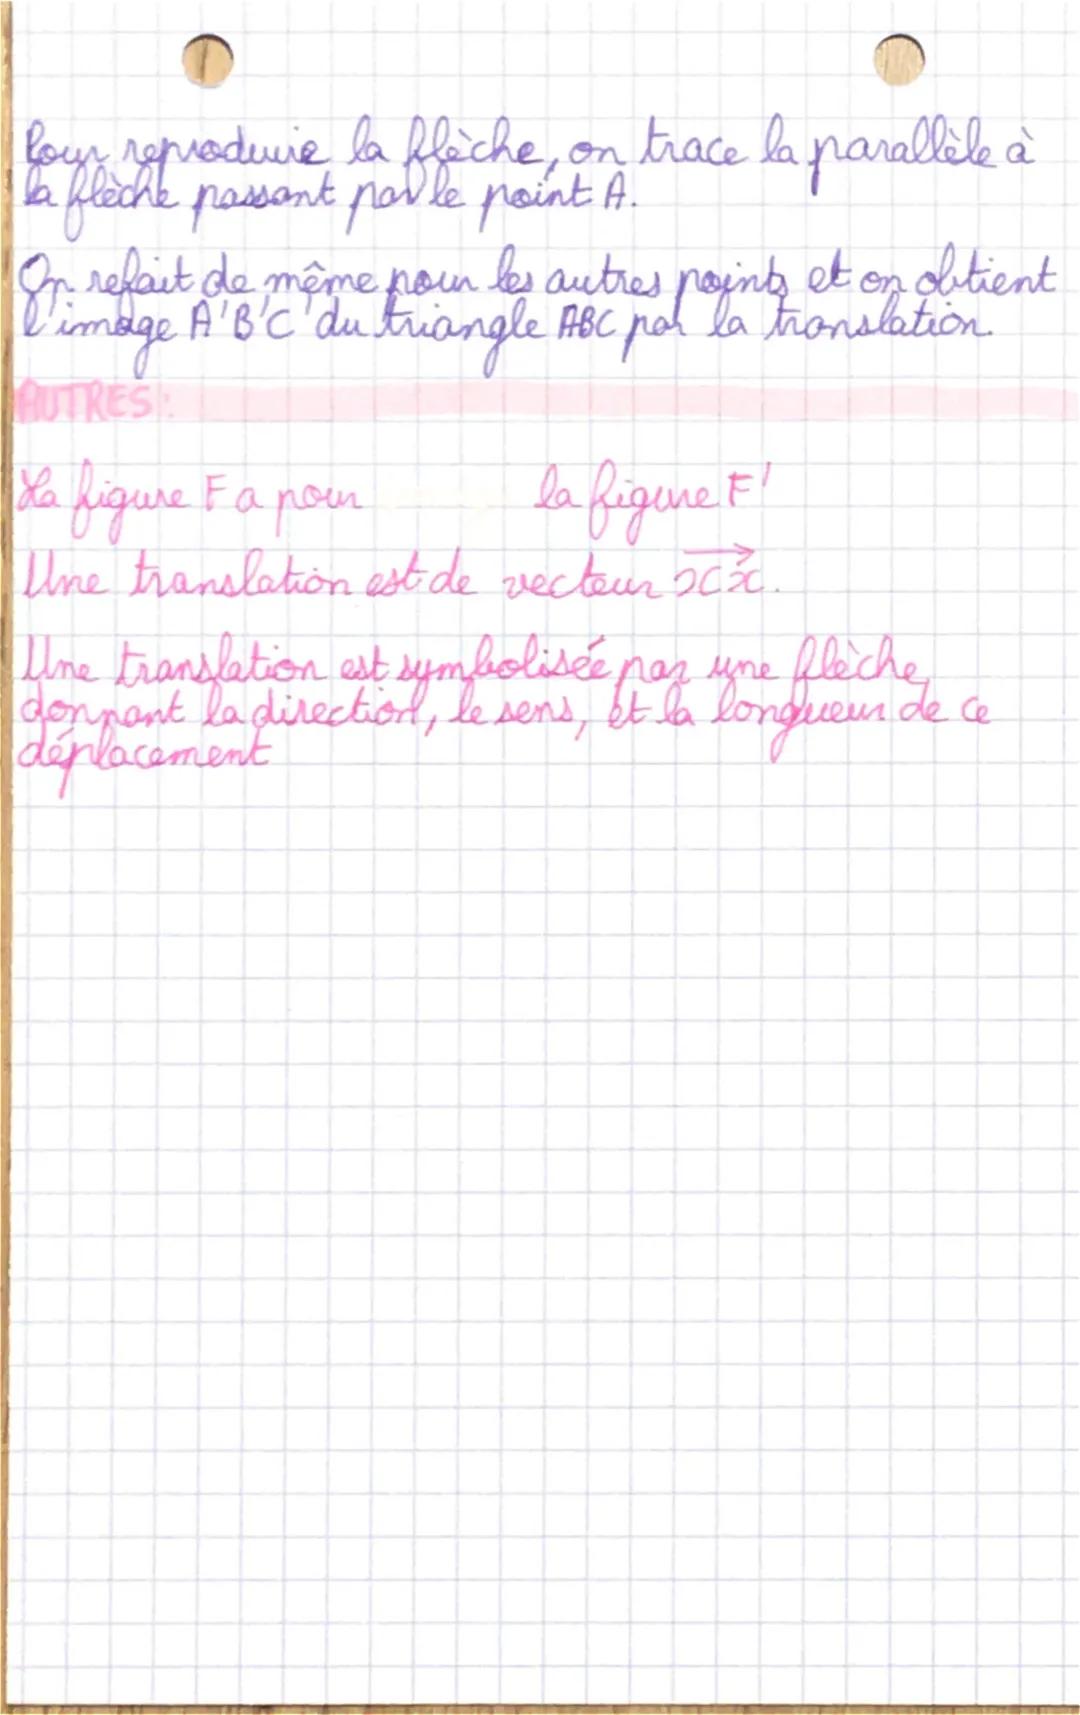 Pour reproduire la flèche, on trace la parallèle à
la flèche passant par le point A.
On refait de même pour les autres points et on obtient
l'image A'B'C' du triangle ABC par la translation.
AUTRES:
La figure F a pour la figure F'
Une translation est de vecteur xx.
Une translation est symbolisée par une flèche,
donnant la direction, le sens, et la longueur de ce
déplacement